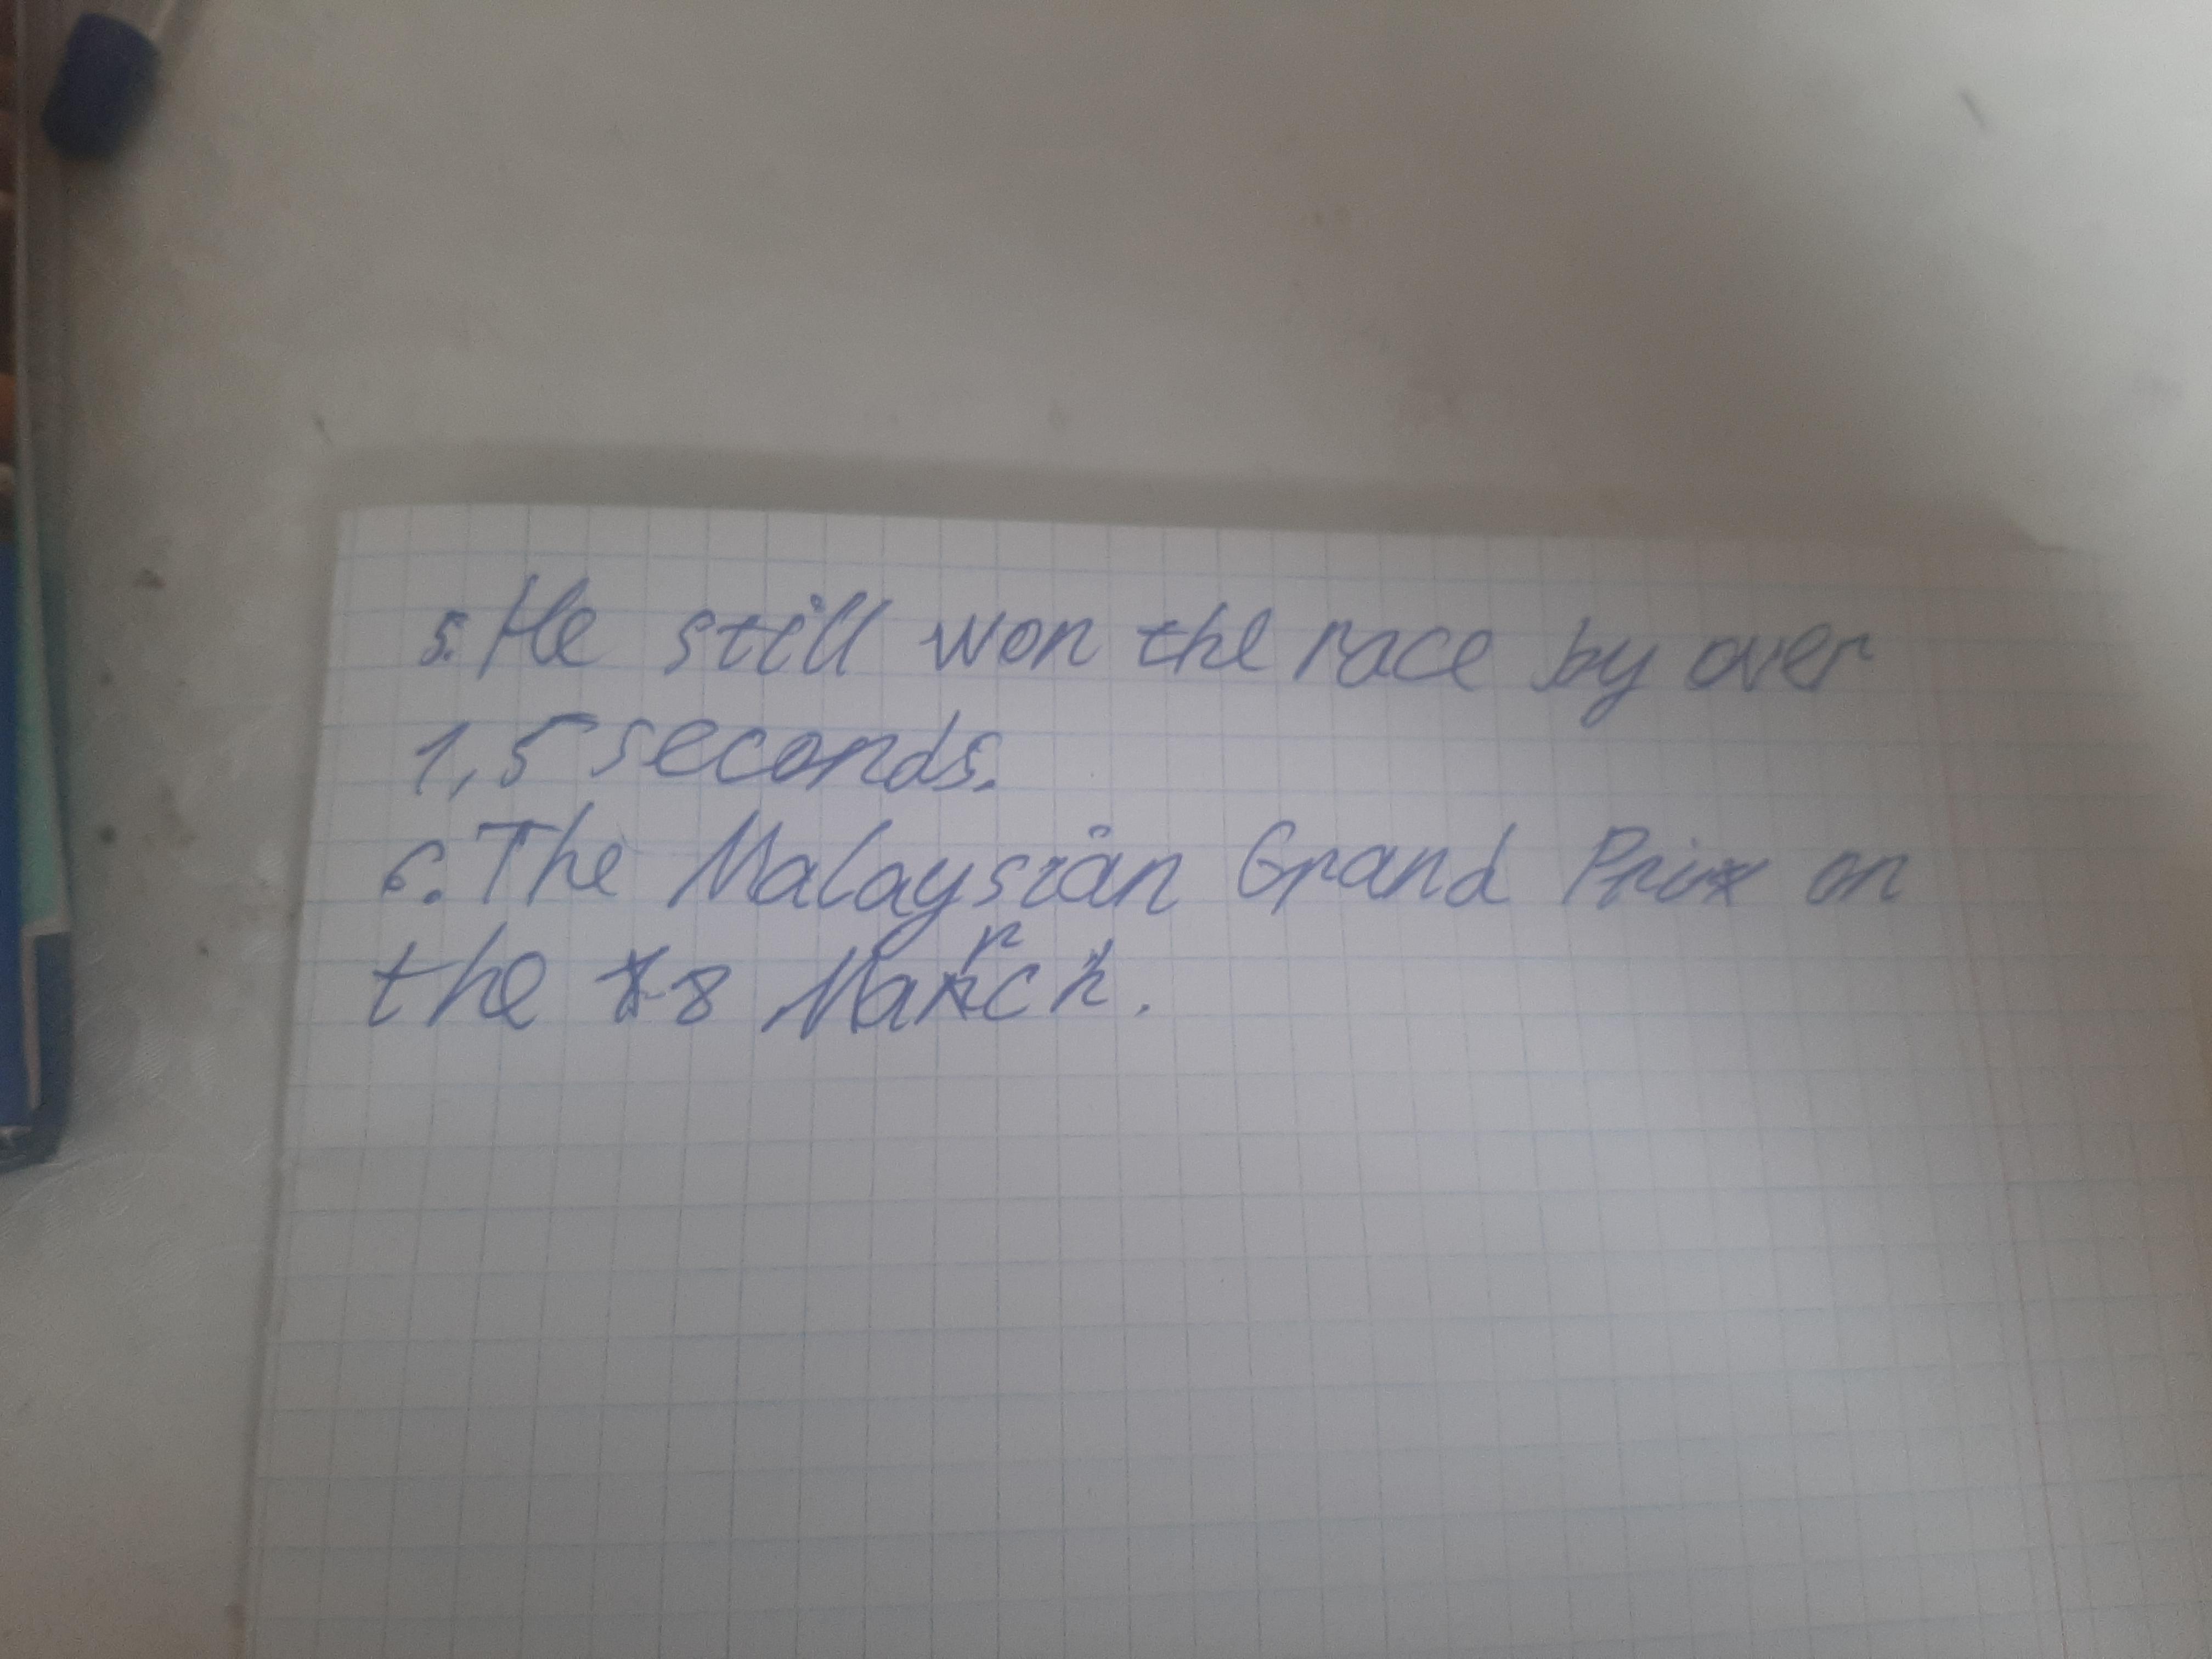 5. He still won the race by over
1,5 seconds.
6. The Malaysian Grand Prix on
the 8 March.